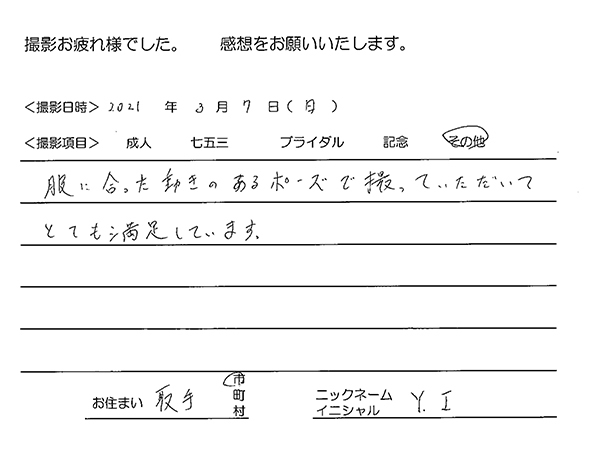 撮影お疲れ様でした。 感想をお願いいたします。
＜撮影日時＞ 2021 年 3 月 7 日（日）
＜撮影項目＞ 成人 七五三 ブライダル 記念 その他
服に合った動きのあるポーズで撮っていただいて
とても満足しています。
お住まい 取手 市 町 村 ニックネーム イニシャル Y. I